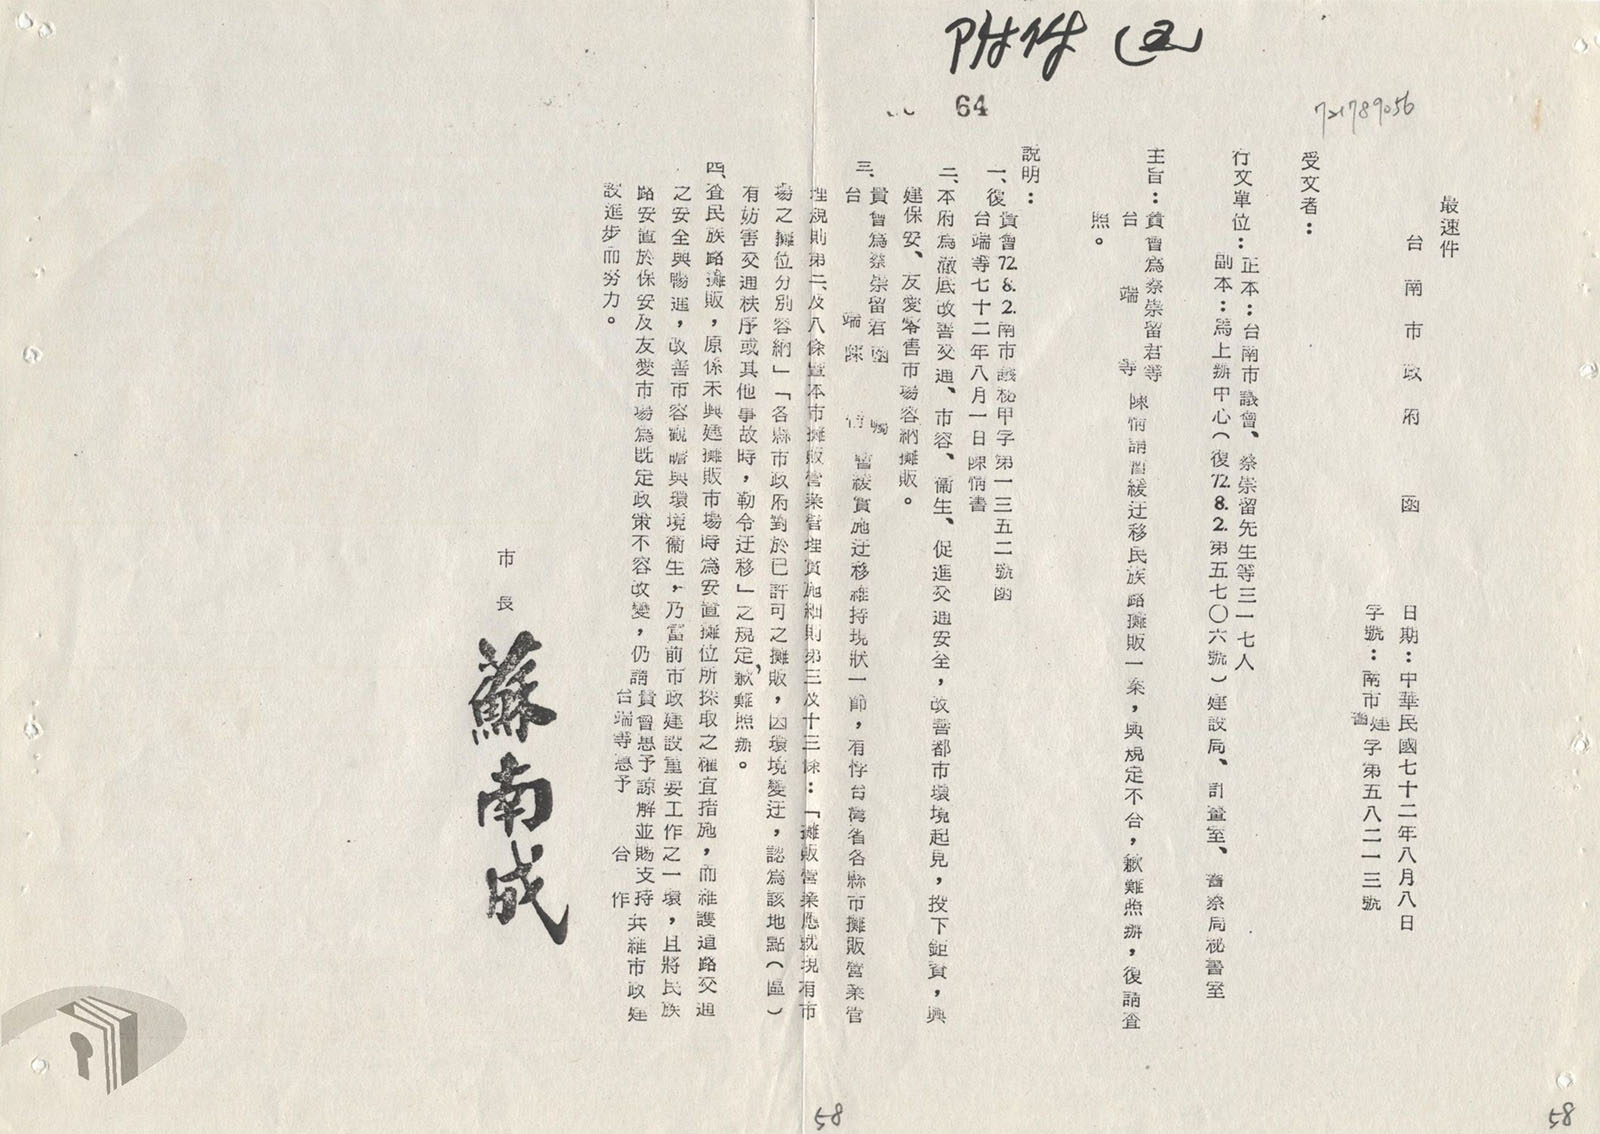 附件(五)
64
721789056
最速件
台南市政府 函
日期：中華民國七十二年八月八日
字號：南市建字第五八二一三號
受文者：
行文單位：正本：台南市議會、蔡崇留先生等三一七人
副本：馬上辦中心（復72.8.2.第五七〇六號）建設局、計畫室、警察局秘書室
主旨：貴會為蔡崇留君等
台端等
陳情請暫緩迁移民族路攤販一案，與規定不合，歉難照辦，復請查
照。
說明：
一、復
貴會72.8.2.南市議秘甲字第一三五二號函
台端等七十二年八月一日陳情書
二、本府為澈底改善交通、市容、衞生、促進交通安全，改善都市環境起見，投下鉅資，興
建保安、友愛零售市場容納攤販。
三、
貴會為蔡崇留君函囑
台端陳情
暫緩實施迁移維持現狀一節，有悖台灣省各縣市攤販營業管
理規則第二、及八條暨本市攤販營業管理實施細則第三及十三條：「攤販營業應就現有市
場之攤位分別容納」「各縣市政府對於已許可之攤販，因環境變迁，認為該地點（區）
有妨害交通秩序或其他事故時，勒令迁移」之規定，歉難照辦。
四、查民族路攤販，原係未興建攤販市場時為安置攤位所採取之權宜措施，而維護道路交通
之安全與暢通，改善市容觀瞻與環境衞生，乃當前市政建設重要工作之一環，且將民族
路安置於保安及友愛市場為既定政策不容改變，仍請
貴會惠予諒解並賜支持
台端等惠予合作
共維市政建
設進步而努力。
市長
蘇南成
58
58